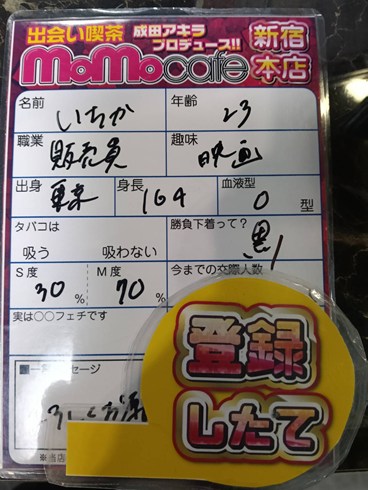 出会い喫茶 成田アキラ プロデュース!! 新宿本店
MoMocafe
名前 いちか 年齢 23
職業 販売員 趣味 映画
出身 東京 身長 164 血液型 O 型
タバコは 勝負下着って?
吸う 吸わない 黒!
S度 M度 今までの交際人数
30 % 70 %
実は○○フェチです
登録
したて
※当店